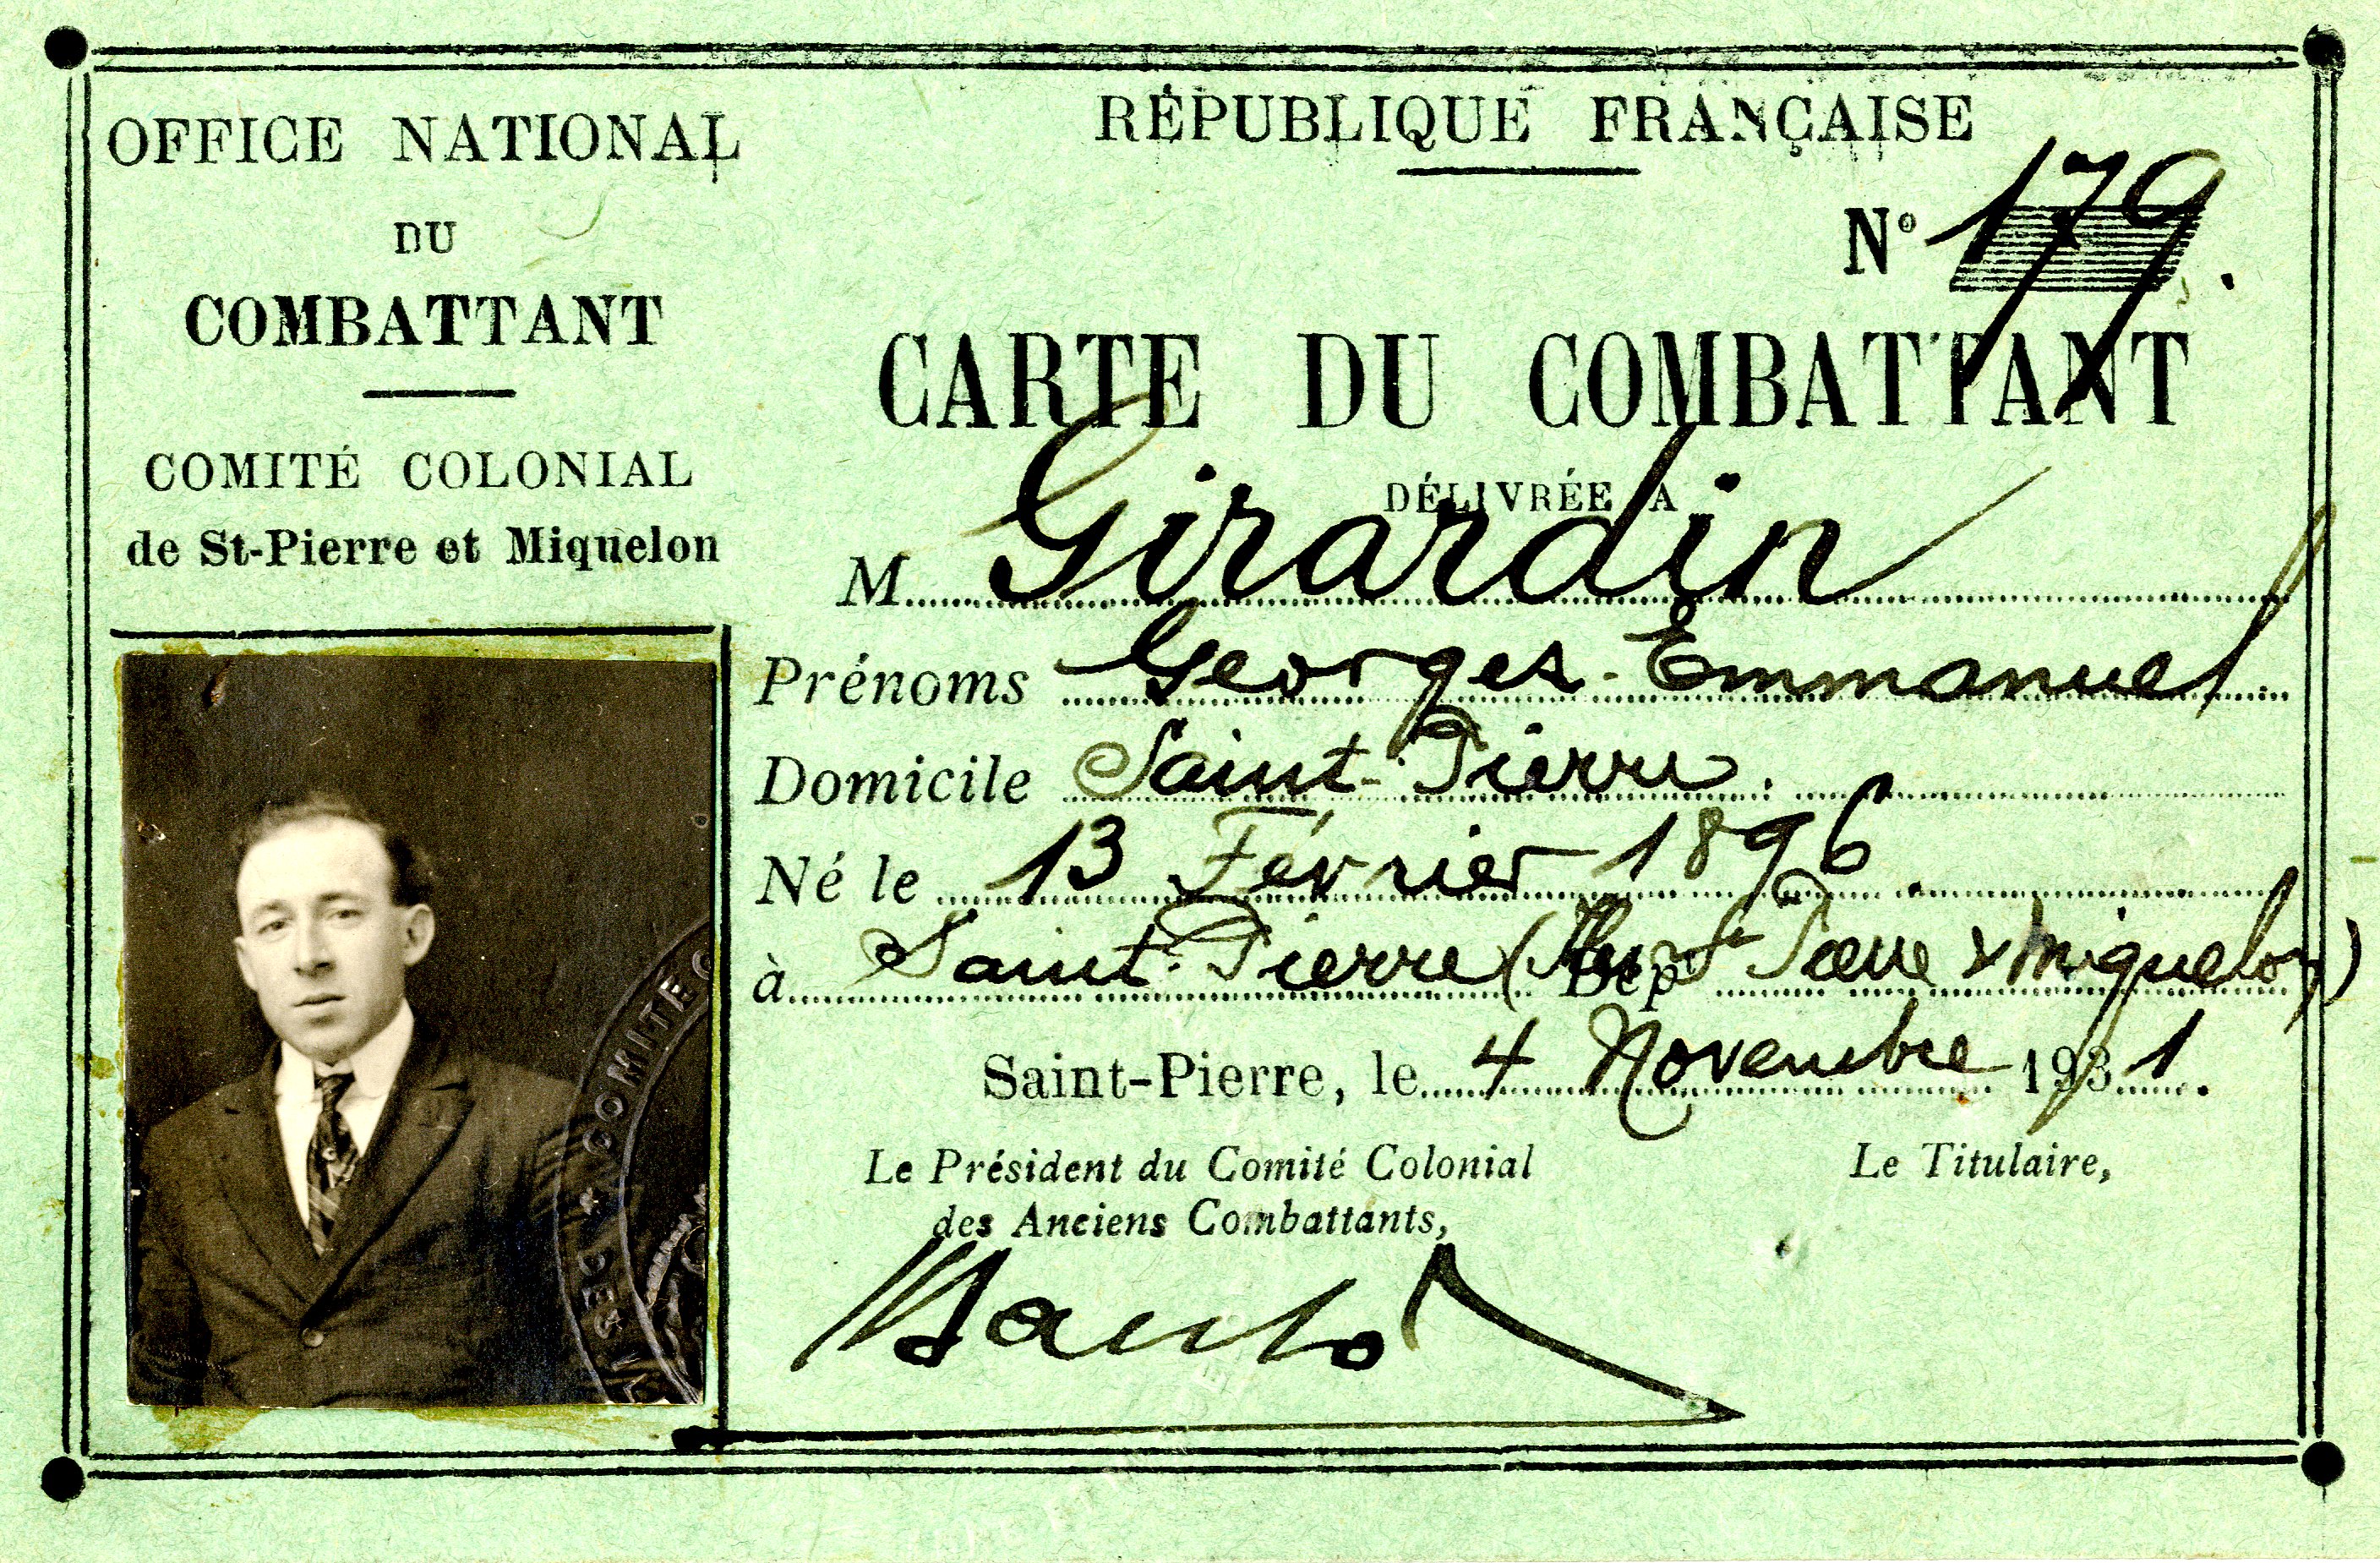 OFFICE NATIONAL
DU
COMBATTANT
COMITÉ COLONIAL
de St-Pierre et Miquelon
RÉPUBLIQUE FRANÇAISE
N° 179.
CARTE DU COMBATTANT
DÉLIVRÉE A
M. Girardin
Prénoms Georges-Emmanuel
Domicile Saint-Pierre.
Né le 13 Février 1896
à Saint-Pierre ( Dépt St Pierre & Miquelon)
Saint-Pierre, le 4 Novembre 1931.
Le Président du Comité Colonial
des Anciens Combattants,
Le Titulaire,
COMITE
DES